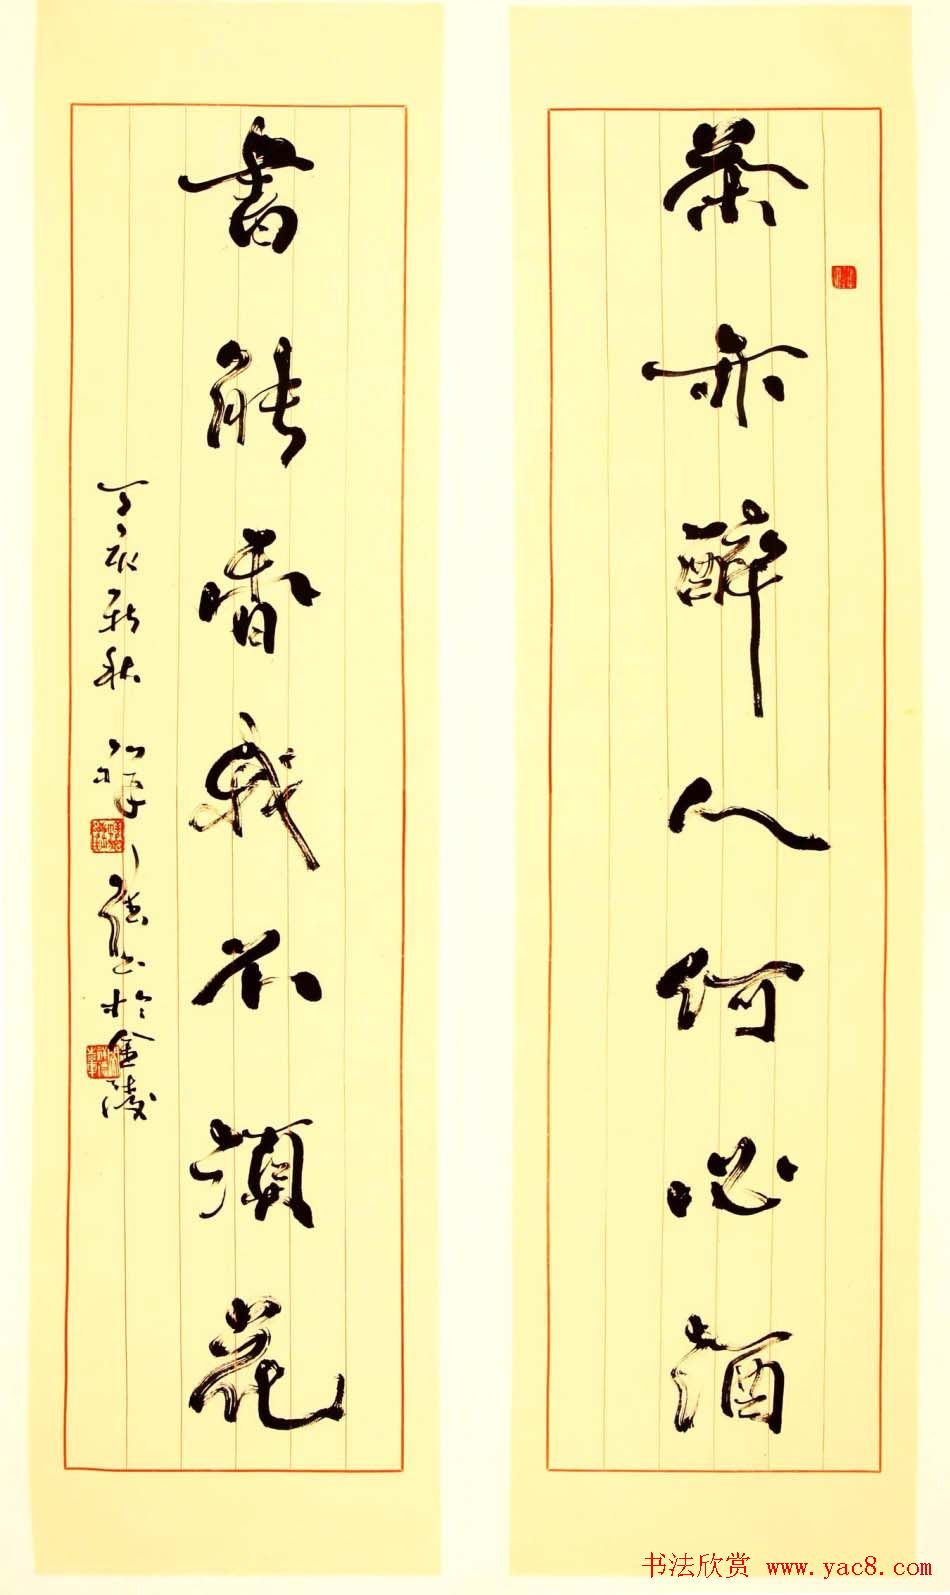 茶亦醉人何必酒
书能香我不须花
丁亥新秋 祥之儒书于金陵
书法欣赏 www.yac8.com